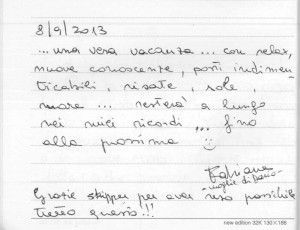 8/9/2013
...una vera vacanza... con relax,
nuove conoscenze, posti indimen
ticabili, risate, sole,
mare... resterà a lungo
nei miei ricordi... fino
alla prossima
Fabiana
- moglie di
Grazie skipper per aver reso possibile
tutto questo!!!
new edition 32K 130×186